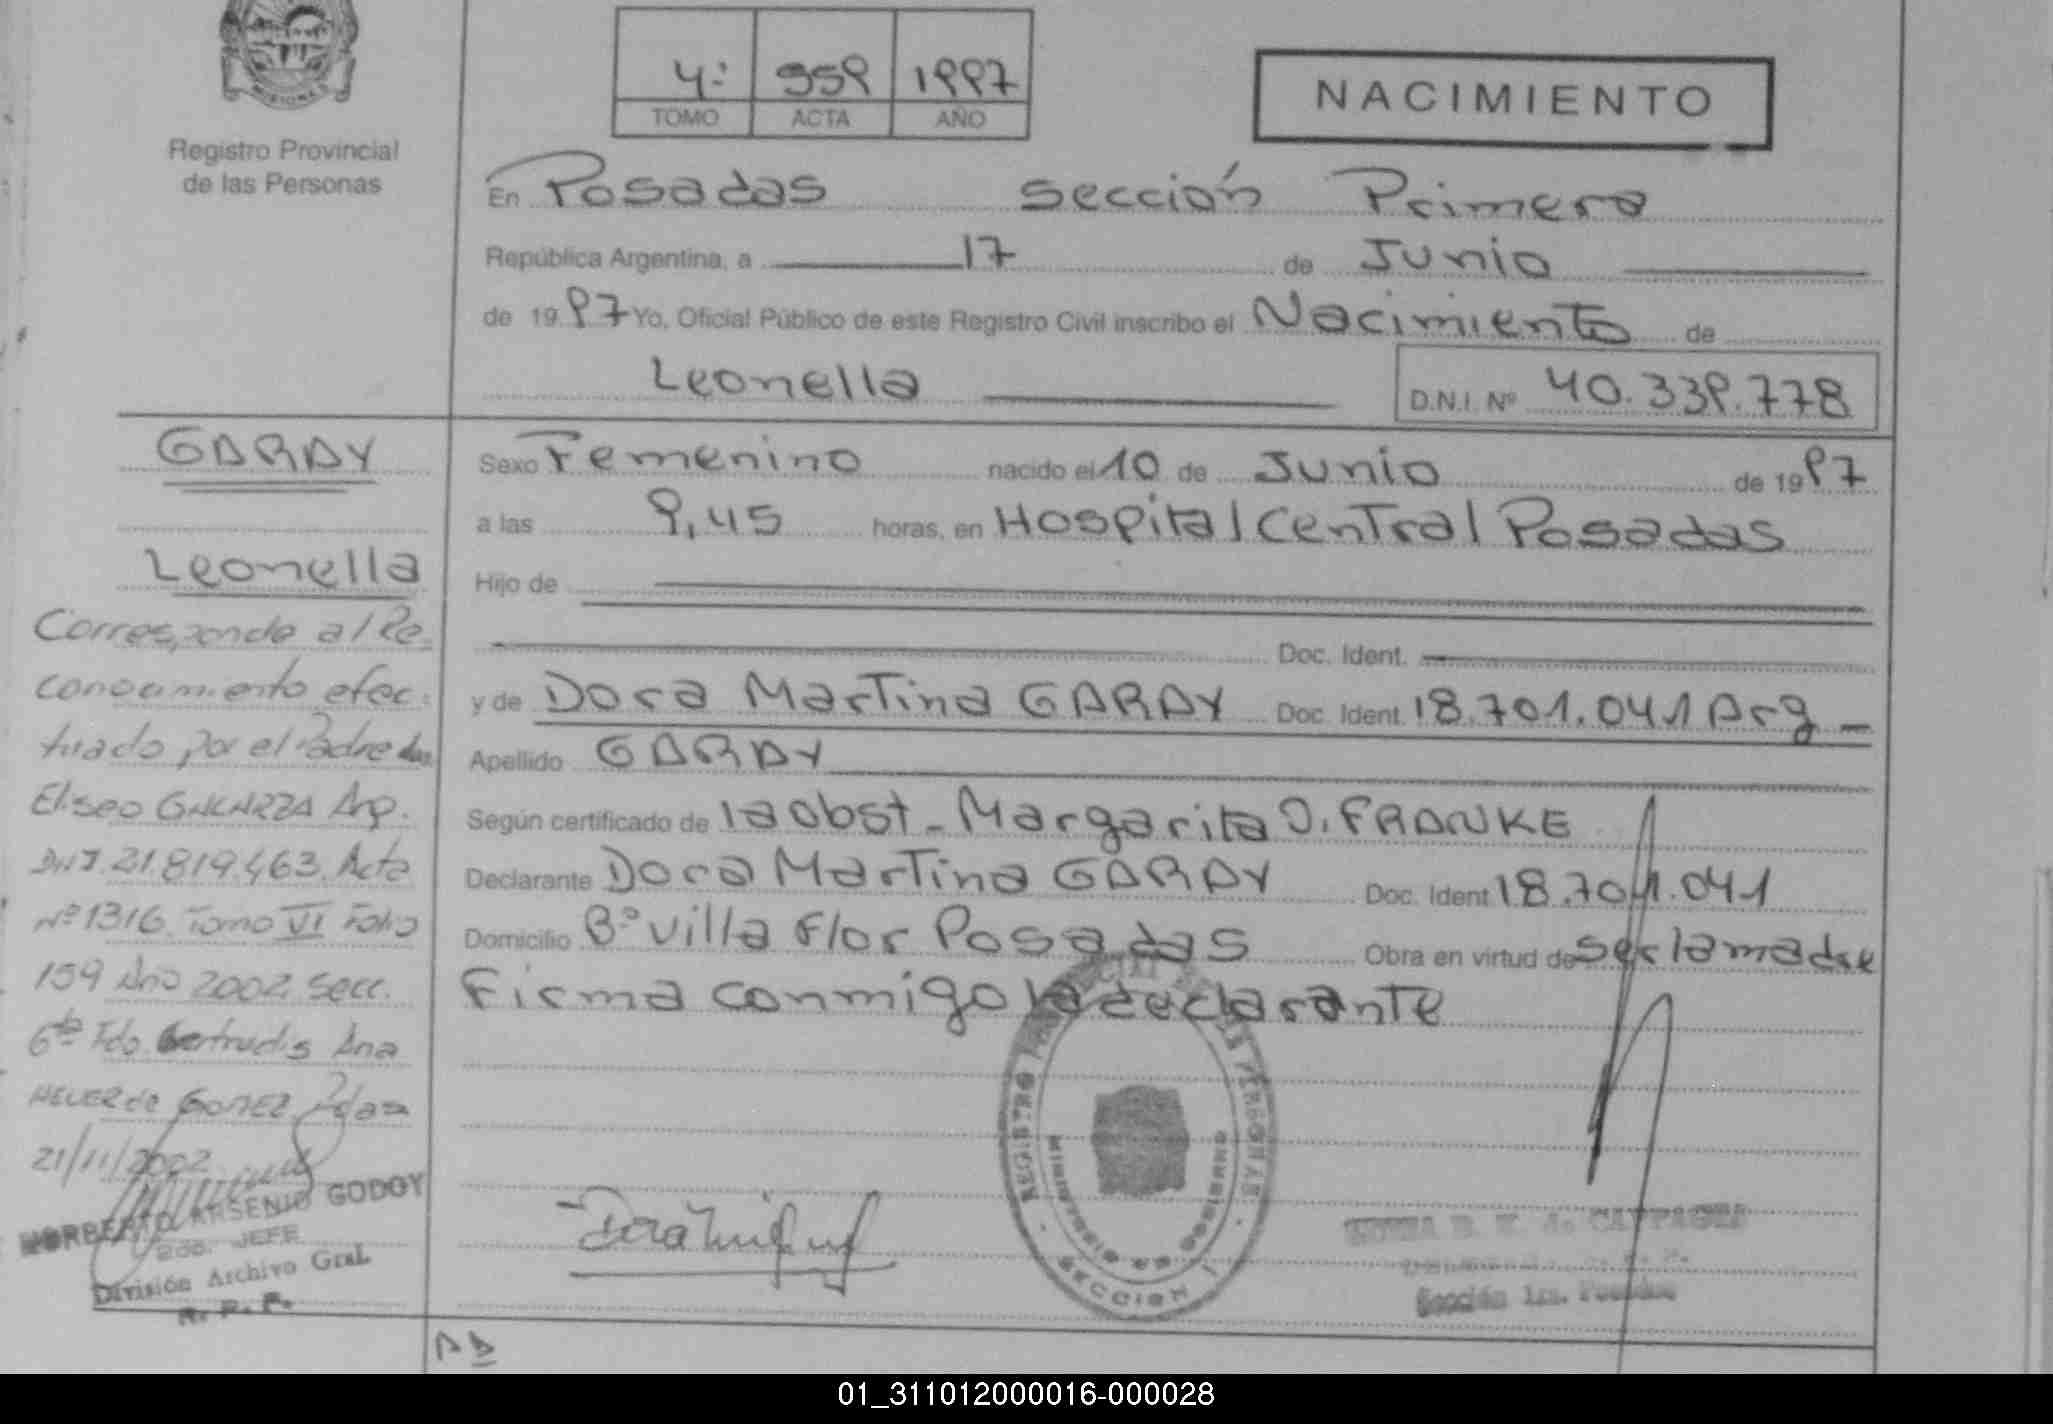 MISIONES
Registro Provincial
de las Personas
4:
959
1997
TOMO
ACTA
AÑO
NACIMIENTO
En Posadas sección Primera
República Argentina, a 17 de Junio
de 1997 Yo, Oficial Público de este Registro Civil inscribo el Nacimiento de
Leonella
D.N.I. Nº 40.339.778
GARAY
Leonella
Sexo Femenino nacido el 10 de Junio de 1997
a las 9,45 horas, en Hospital Central Posadas
Hijo de
Doc. Ident.
y de Dora Martina GARAY Doc. Ident. 18.701.041 Arg
Apellido GARAY
Según certificado de la Obst. Margarita O. FRANKE
Declarante Dora Martina GARAY Doc. Ident 18.701.041
Domicilio Bº Villa Flor Posadas Obra en virtud de ser la madre
Firma conmigo la declarante
Corresponde al Re-
conocimiento efec-
tuado por el Padre
Eliseo GALARZA Arg.
DNI. 21.819.463. Acta
Nº 1316 Tomo VI Folio
159 Año 2002 Secc.
6ta Fdo. Gertrudis Ana
de GOMEZ Pdas
21/11/2002
NORBERTO ARSENIO GODOY
2do. JEFE
División Archivo Gral.
R. P. P.
REGISTRO DE LAS PERSONAS
MINISTERIO DE GOBIERNO
SECCION 1
Sección 1ra. Posadas
01_311012000016-000028